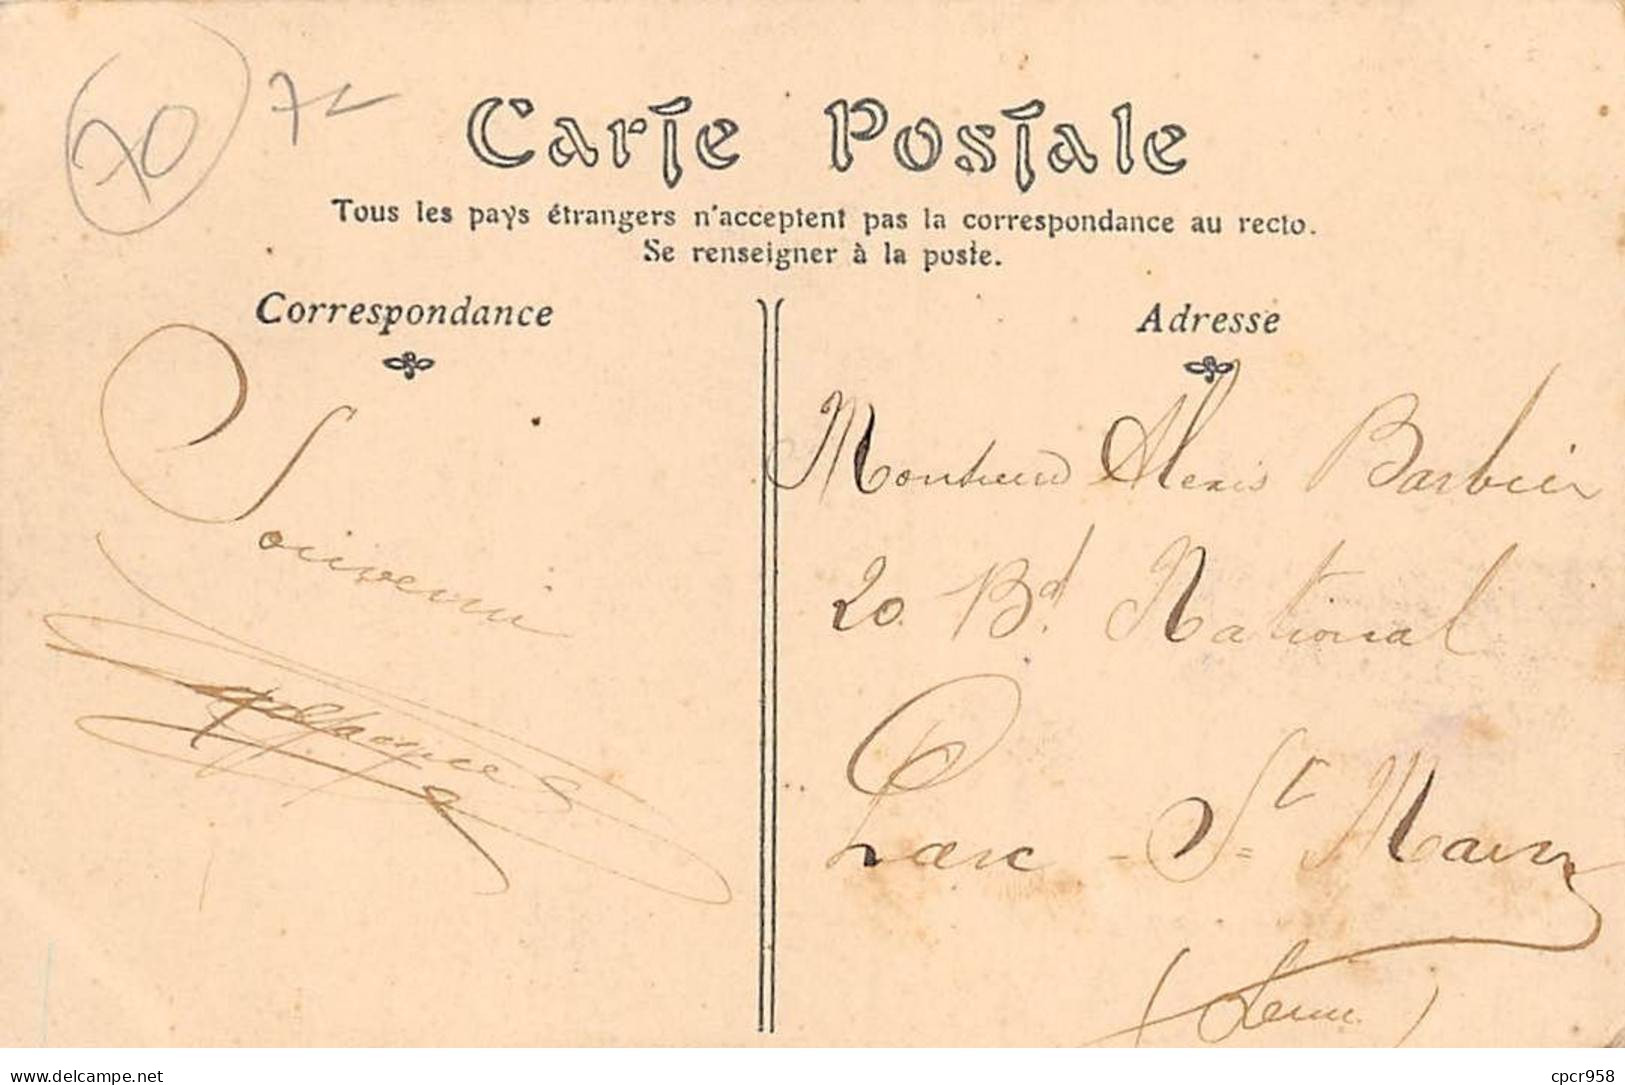 70
72
Carte Postale
Tous les pays étrangers n'acceptent pas la correspondance au recto.
Se renseigner à la poste.
Correspondance
Adresse
Souvenir
Monsieur Alexis Barbier
20. Bd. National
Parc - St= Maur
(Seine)
www.delcampe.net
cpcr958